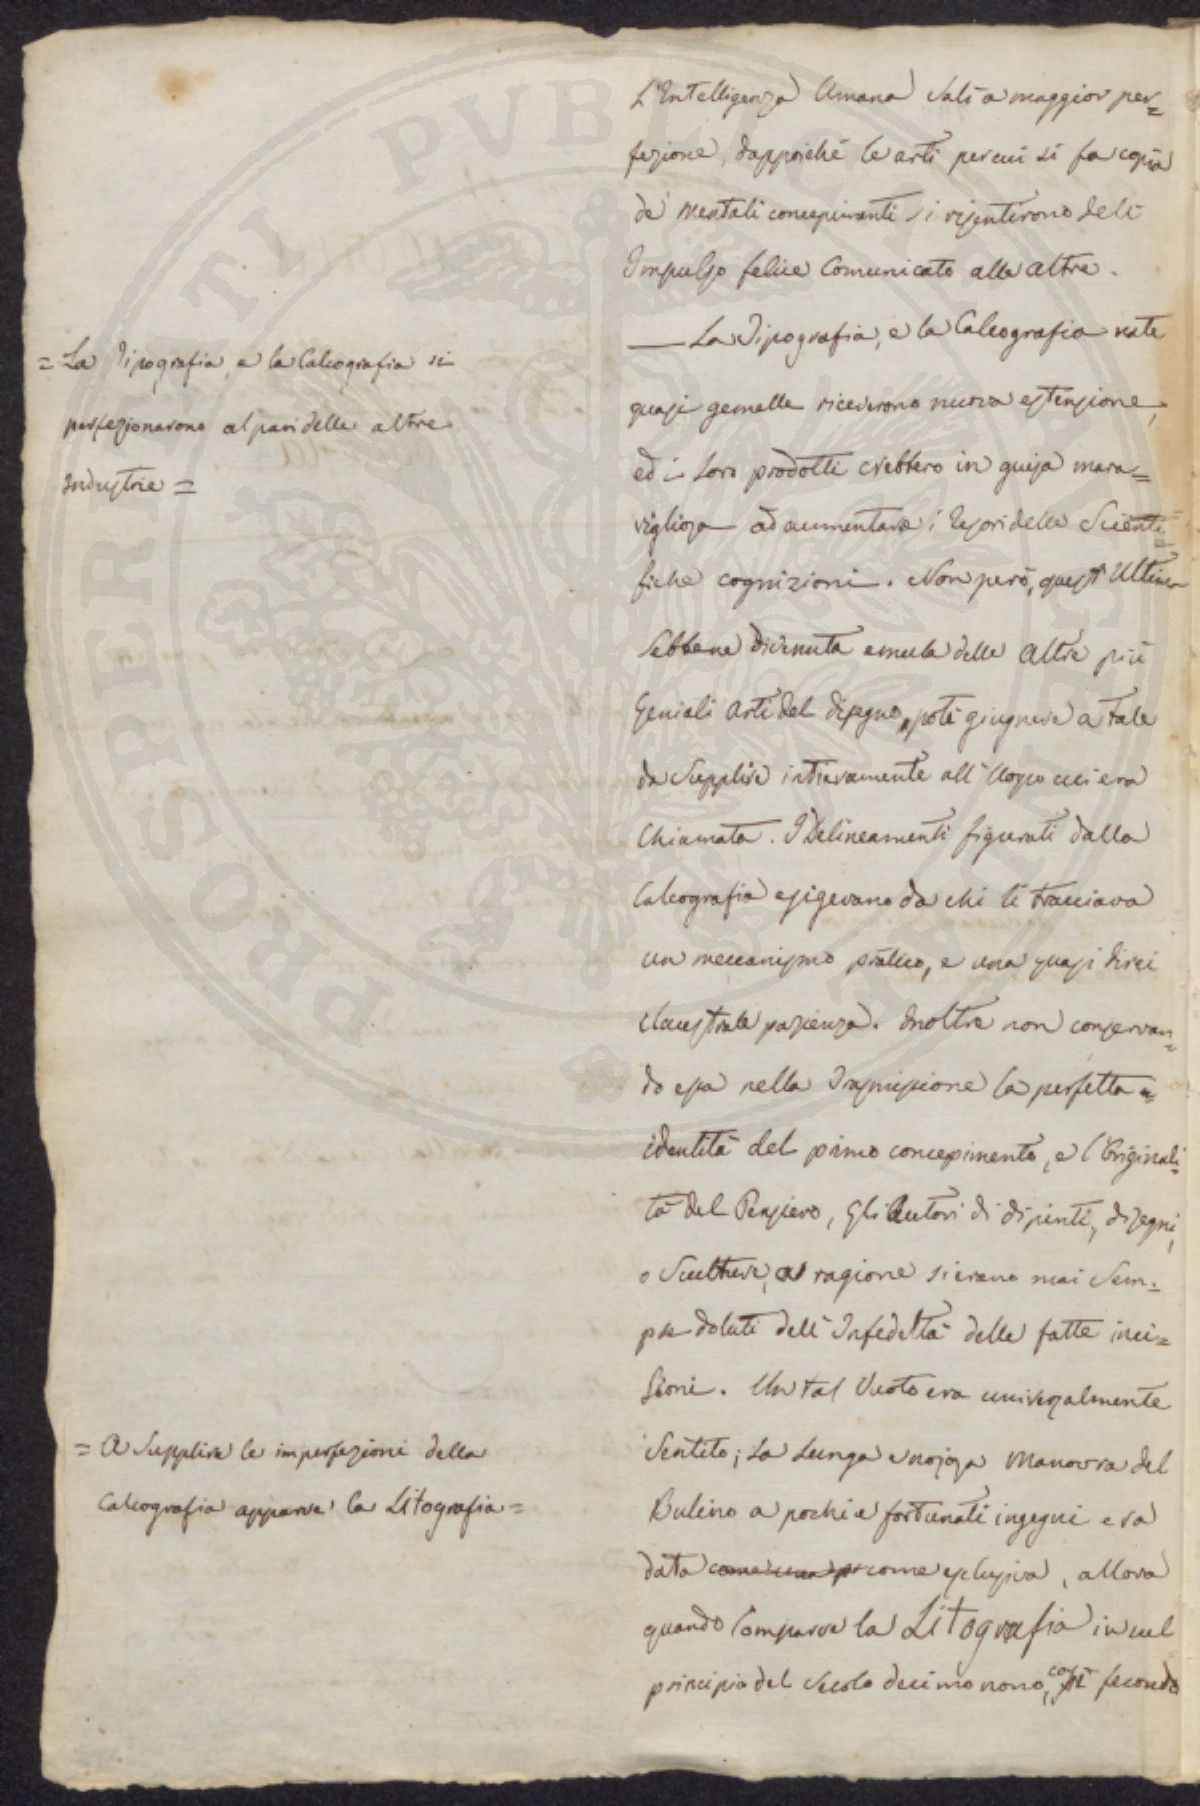 L'Intelligenza Umana salì a maggior per=
fezione, dappoiché le arti per cui si fa copia
de' mentali concepimenti si risentirono dell'
Impulso felice Comunicato alle altre.
= La Tipografia, e la Calcografia si
perfezionarono al pari delle altre
Industrie =
— La Tipografia, e la Calcografia nate
quasi gemelle riceverono nuova estensione,
ed i loro prodotti crebbero in guisa mara=
vigliosa ad aumentare i tesori delle Scienti=
fiche cognizioni. Non però, quest'Ultima
sebbene divenuta emula delle altre più
Geniali arti del disegno, poté giugnere a tale
da supplire intieramente all'uopo cui era
Chiamata. I Delineamenti figurati dalla
Calcografia esigevano da chi li tracciava
un meccanismo pratico, e una quasi direi
claustrale pazienza. Inoltre non conservan=
do essa nella Trasmissione la perfetta =
identità del primo concepimento, e l'Originali=
tà del Pensiero, Gli Autori di dipinti, disegni,
o Sculture, a ragione si erano mai Sem=
pre doluti dell'Infedeltà delle fatte inci=
sioni. Un tal Vuoto era universalmente
Sentito; La Lunga e nojosa Manovra del
Bulino a pochi e fortunati ingegni era
data come una pr come esclusiva, allora
quando Comparve la Litografia in sul
principio del secolo decimonono, così fecondo
= A Supplire le imperfezioni della
Calcografia apparve la Litografia =
PROSPERITATI PUBLICAE